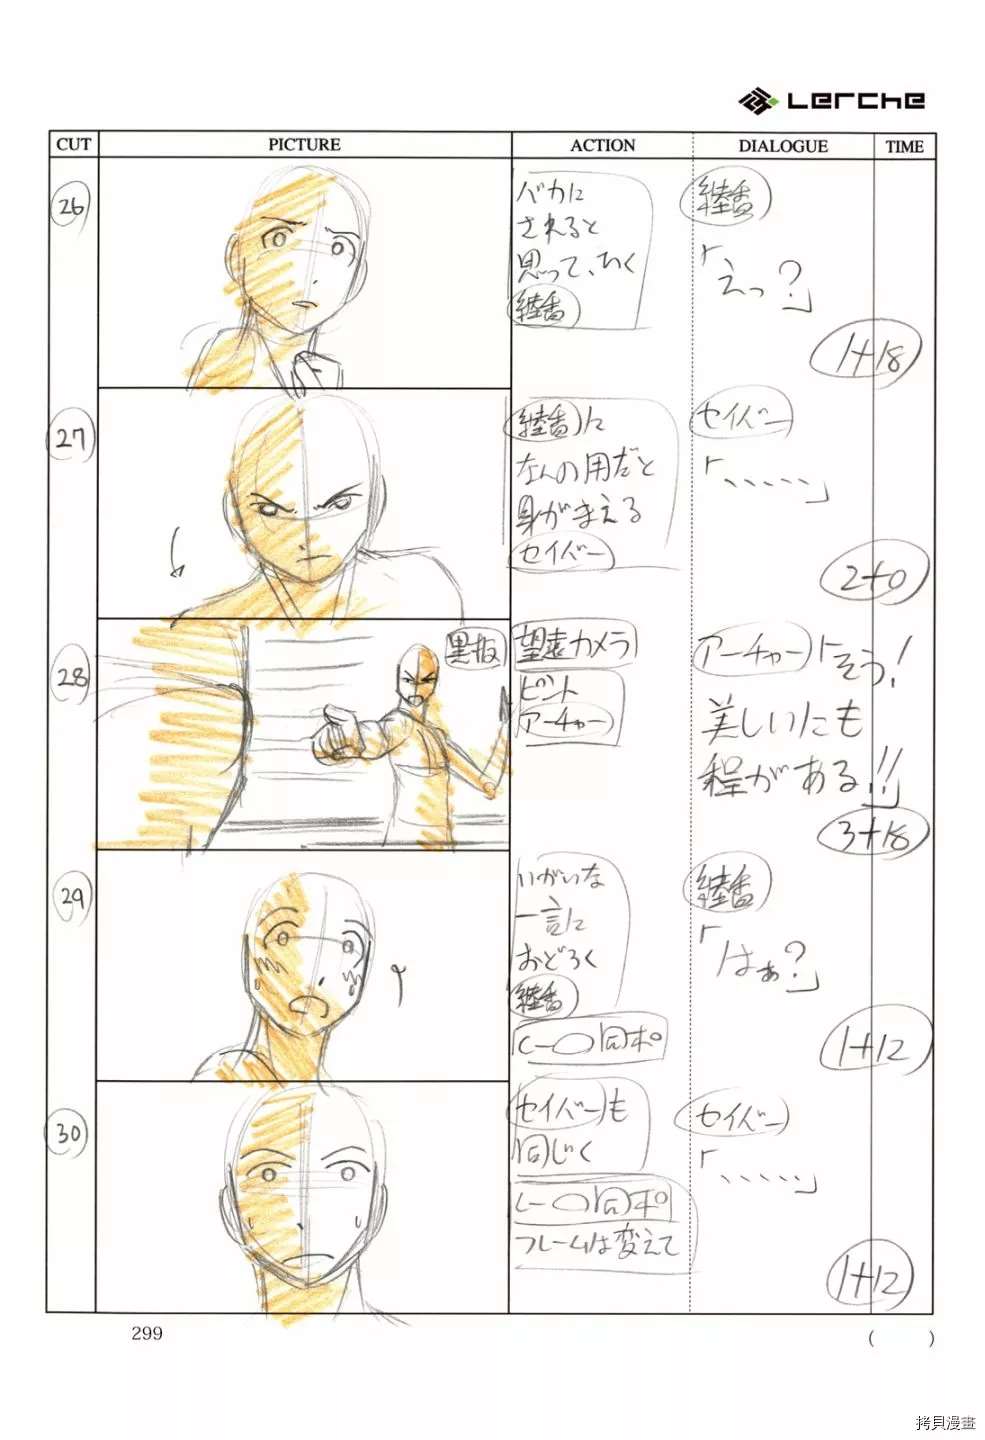 Lerche
CUT
PICTURE
ACTION
DIALOGUE
TIME
26
バカに
されると
思って、わく
綾香
綾香
「えっ?」
1+18
27
綾香に
なんの用だと
身がまえる
セイバー
セイバー
「、、、、、」
2+0
28
黒板
望遠カメラ
ピント
アーチャー
アーチャー「そう!
美しいにも
程がある!!」
3+18
29
いがいな
一言に
おどろく
綾香
C-〇同ポ
綾香
「はぁ?」
1+12
30
セイバーも
同じく
C-〇同ポ
フレームは変えて
セイバー
「、、、、、」
1+12
299
( )
拷貝漫畫